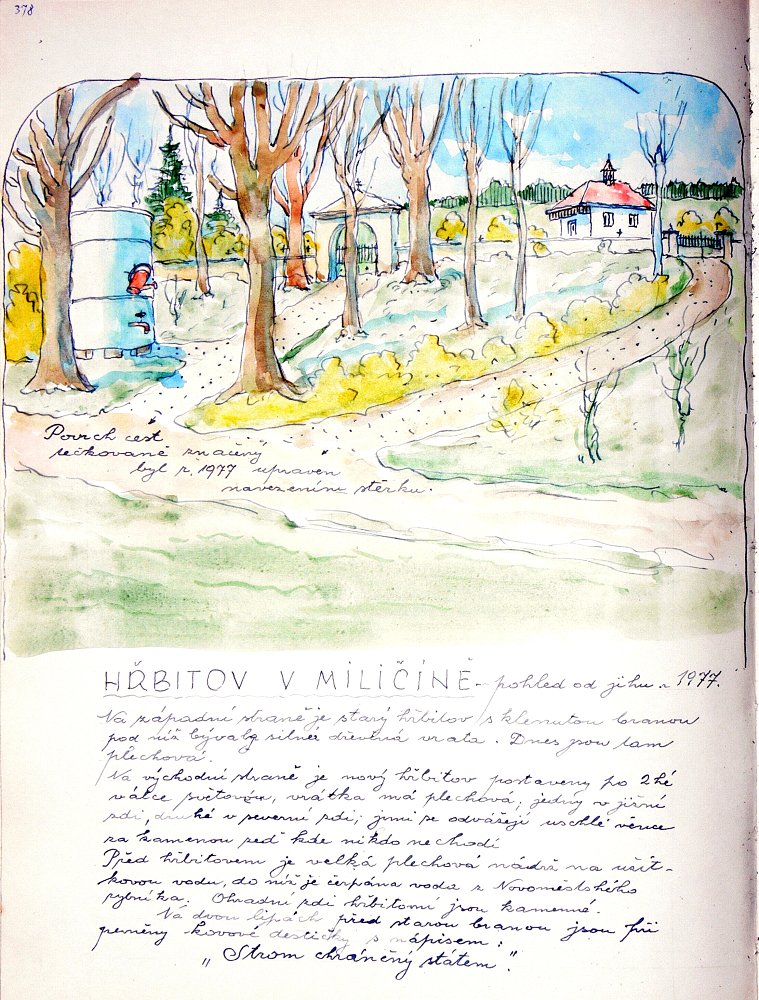 378
Povrch cest
tečkovaně značený
byl r. 1977 upraven
navezením štěrku.
HŘBITOV V MILIČÍNĚ - pohled od jihu r. 1977.
Na západní straně je starý hřbitov s klenutou branou
pod níž bývaly silné dřevěná vrata. Dnes jsou tam
plechová.
Na východní straně je nový hřbitov postavený po 2hé
válce světovém, vrátka má plechová; jedny v jižní
zdi, druhé v severní zdi; jimi se odvážejí uschlé věnce
za kamenou zeď kde nikdo nechodí
Před hřbitovem je velká plechová nádrž na užit-
kovou vodu, do níž je čerpána voda z Novoměstského
rybníka. Ohradní zdi hřbitovní jsou kamenné.
Na dvou lípách před starou branou jsou při
pevněny kovové destičky s nápisem:
„Strom chráněný státem".